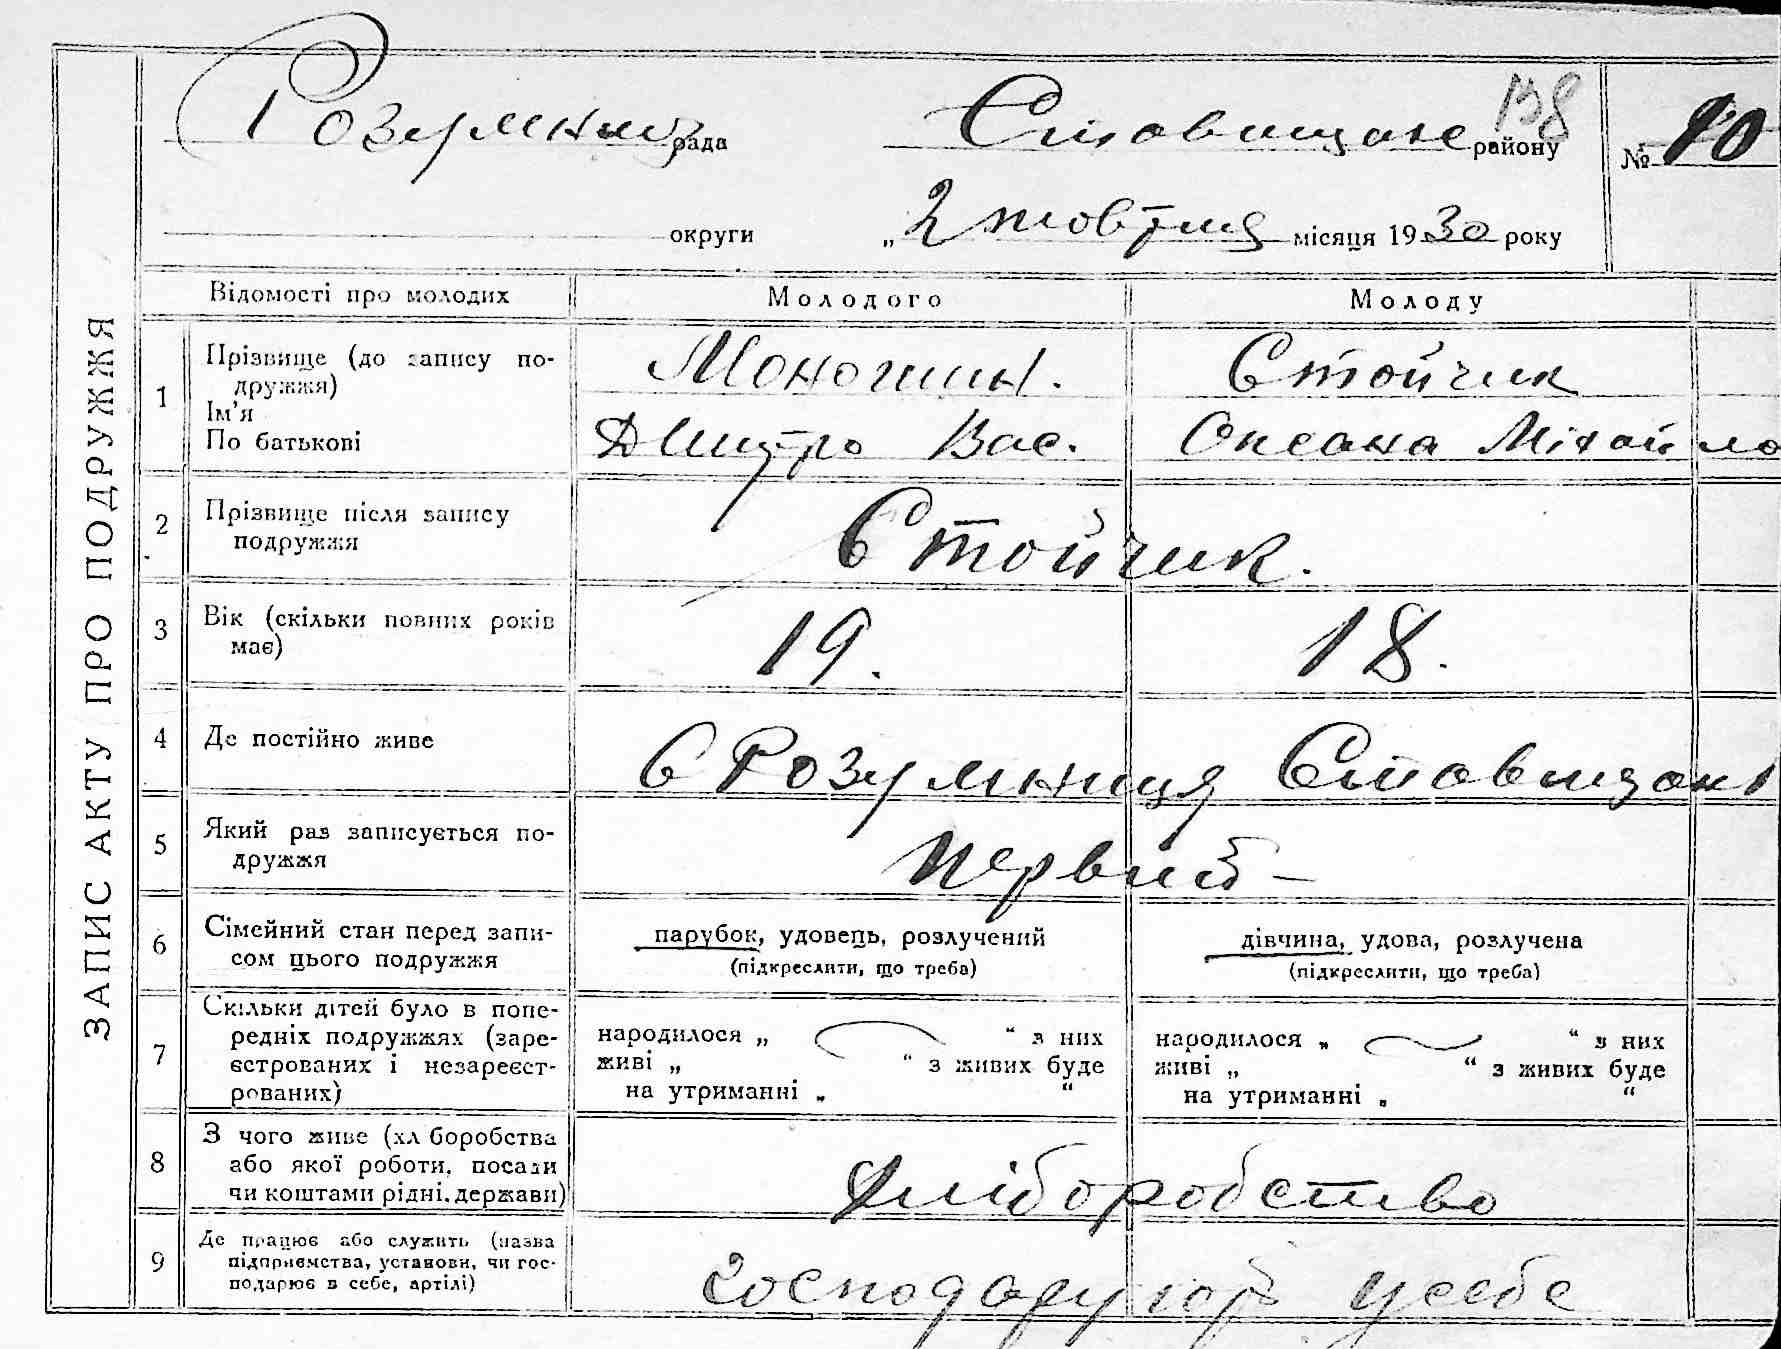 138
Розумниц рада Ставищан району № 10
округи „2 жовтня місяця 1930 року
ЗАПИС АКТУ ПРО ПОДРУЖЖЯ
Відомості про молодих Молодого Молоду
1 Прізвище (до запису по-
дружжя)
Ім’я
По батькові
Стойчик
Дмитро Вас. Оксана Міхайло
2 Прізвище після запису
подружжя
Стойчик.
3 Вік (скільки повних років
має)
19. 18.
4 Де постійно живе
С Розумниця Ставищан
5 Який раз записується по-
дружжя
первий –
6 Сімейний стан перед запи-
сом цього подружжя
парубок, удовець, розлучений дівчина, удова, розлучена
(підкреслити, що треба) (підкреслити, що треба)
7 Скільки дітей було в попе-
редніх подружжях (заре-
єстрованих і незареєст-
рованих)
народилося „ “ з них народилося „ “ з них
живі „ “ з живих буде живі „ “ з живих буде
на утриманні „ “ на утриманні „ “
8 З чого живе (хл боробства
або якої роботи, посади
чи коштами рідні, держави)
Хліборобство
9 Де працює або служить (назва
підприємства, установи, чи гос-
подарює в себе, артілі)
господарують у себе